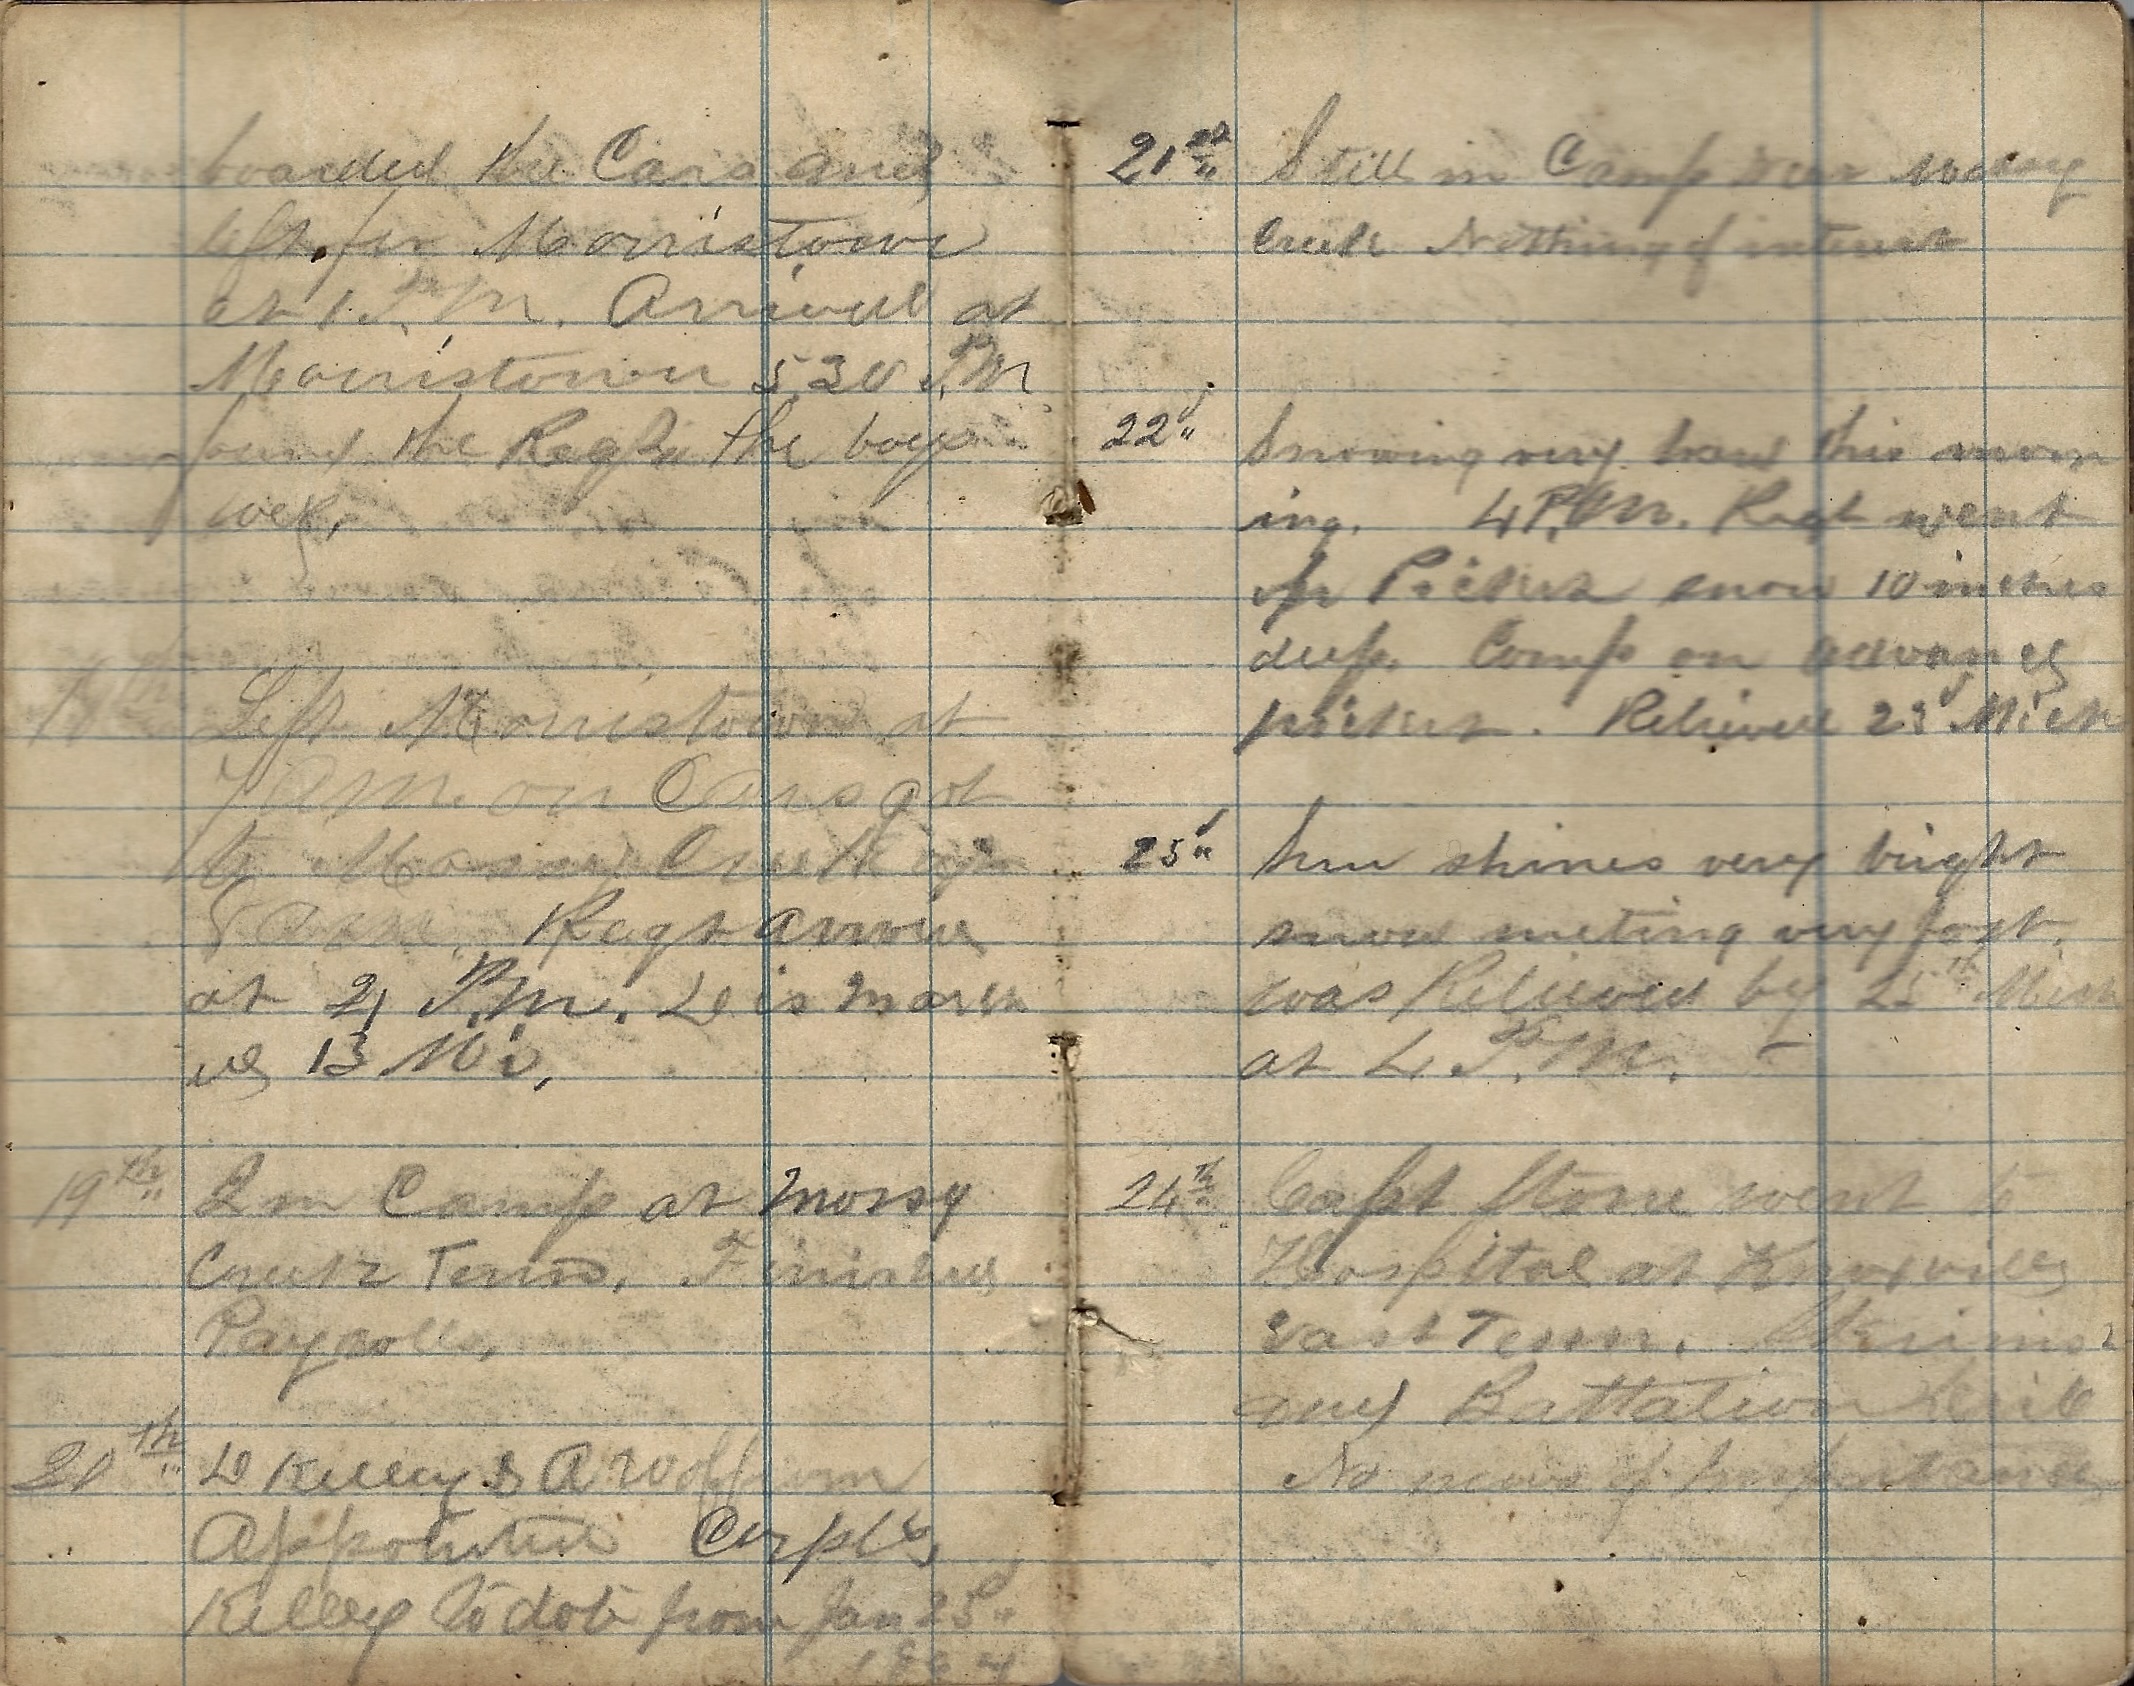 boarded the Cars and
left for Morristown
at 1 P.M. Arrived at
Morristown 5 30 P.M
found the Regt. the boys
well.
Left Morristown at
7 AM. on Cars got
to Mossy Creek
8 a.m. Regt arrived
at 4 P.M. Dis march
ed 13 Mi.
19th In Camp at Mossy
Creek Tenn. Finished
Payrolls.
20th D Kelley & A Wolfrom
Appointed Corpls,
Kelley to date from Jan 25"
1864
21st Still in Camp near Mossy
Creek Nothing of interest
22d Snowing very hard this morn
ing. 4 P.M. Regt went
on Picket snow 10 inches
deep. Comp on advance
picket. Relieved 23d Mich
23d Sun shines very bright
snow melting very fast.
was Relieved by 25th Mich
at 4 P.M.
24th Capt Stone went to
Hospital at Knoxville
East Tenn. Skirmish
and Battalion Drill
No news of importance